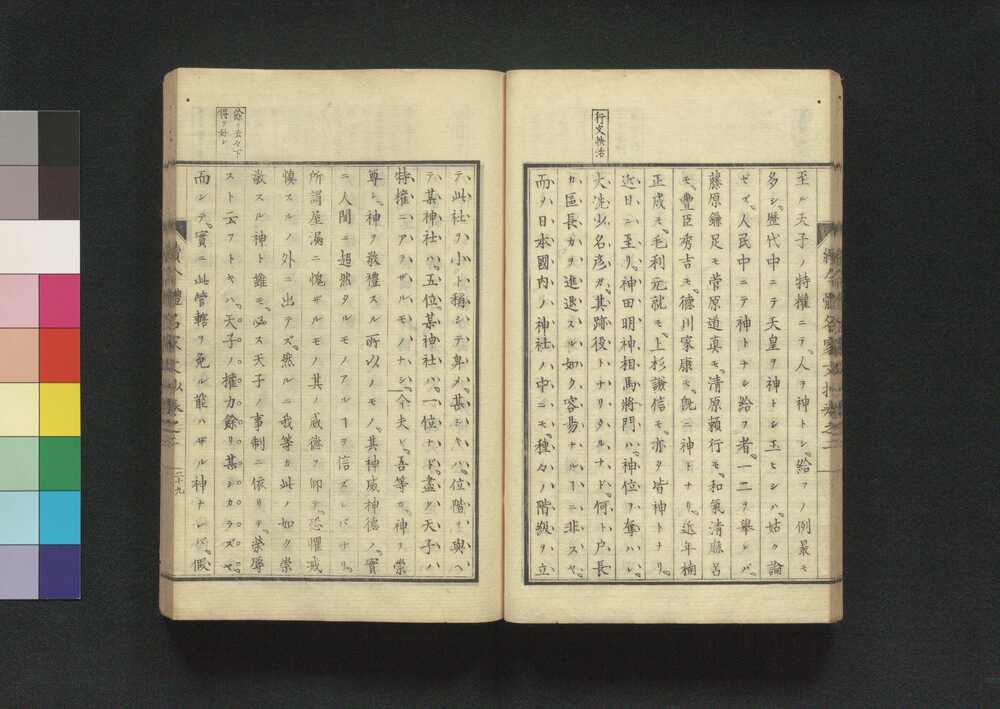 行文快活
至ル天子ノ特權ニテ、人ヲ神トシ給フノ例最モ
多シ、歴代中ニテ天皇ヲ神トシ玉ヒシハ、姑ク論
ゼズ、人民中ニテ神トナシ給フ者、一二ヲ舉レバ、
藤原鎌足モ、菅原道真モ、清原頼行モ、和氣清麻呂
モ、豐臣秀吉モ、徳川家康モ、既ニ神トナリ、近年楠
正成モ、毛利元就モ、上杉謙信モ、亦タ皆神トナリ、
近日ニ至リ、神田明神相馬將門ハ、神位ヲ奪ハレ、
大洗少名彦ガ、其跡役トナリタルナド、何ト户長
カ區長カヲ進退スル如ク、容易ナルヿニ非スヤ、
而ヲ日本國内ノ神社ノ中ニモ、種々ハ階級ヲ立
テ、此社ヲ小ト稱シテ卑メ、甚シキハ、位階ヲ與ヘ
テ、某神社ハ、五位、某神社ハ、一位ナド、盡ク天子ハ
特權ニアラザルモノナシ、今夫レ吾等ガ、神ヲ崇
尊シ、神ヲ敬禮スル所以ノモノ、其神威神德ノ、實
ニ人間ニ超然タルモノアルヿヲ信ズレバナリ、
所謂屋漏ニ愧ザルモノ其ノ威德ヲ仰テ、恐懼戒
慎スルノ外ニ出テズ、然ルニ我等ガ此ノ如ク崇
敬スル神ト雖モ、必ス天子ノ事制ニ依リテ、榮辱
スト云フトキハ、天子ノ權力餘リ甚シカラズヤ、
而シテ、實ニ此管轄ヲ免ル能ハザル神ナレバ、假
二十九